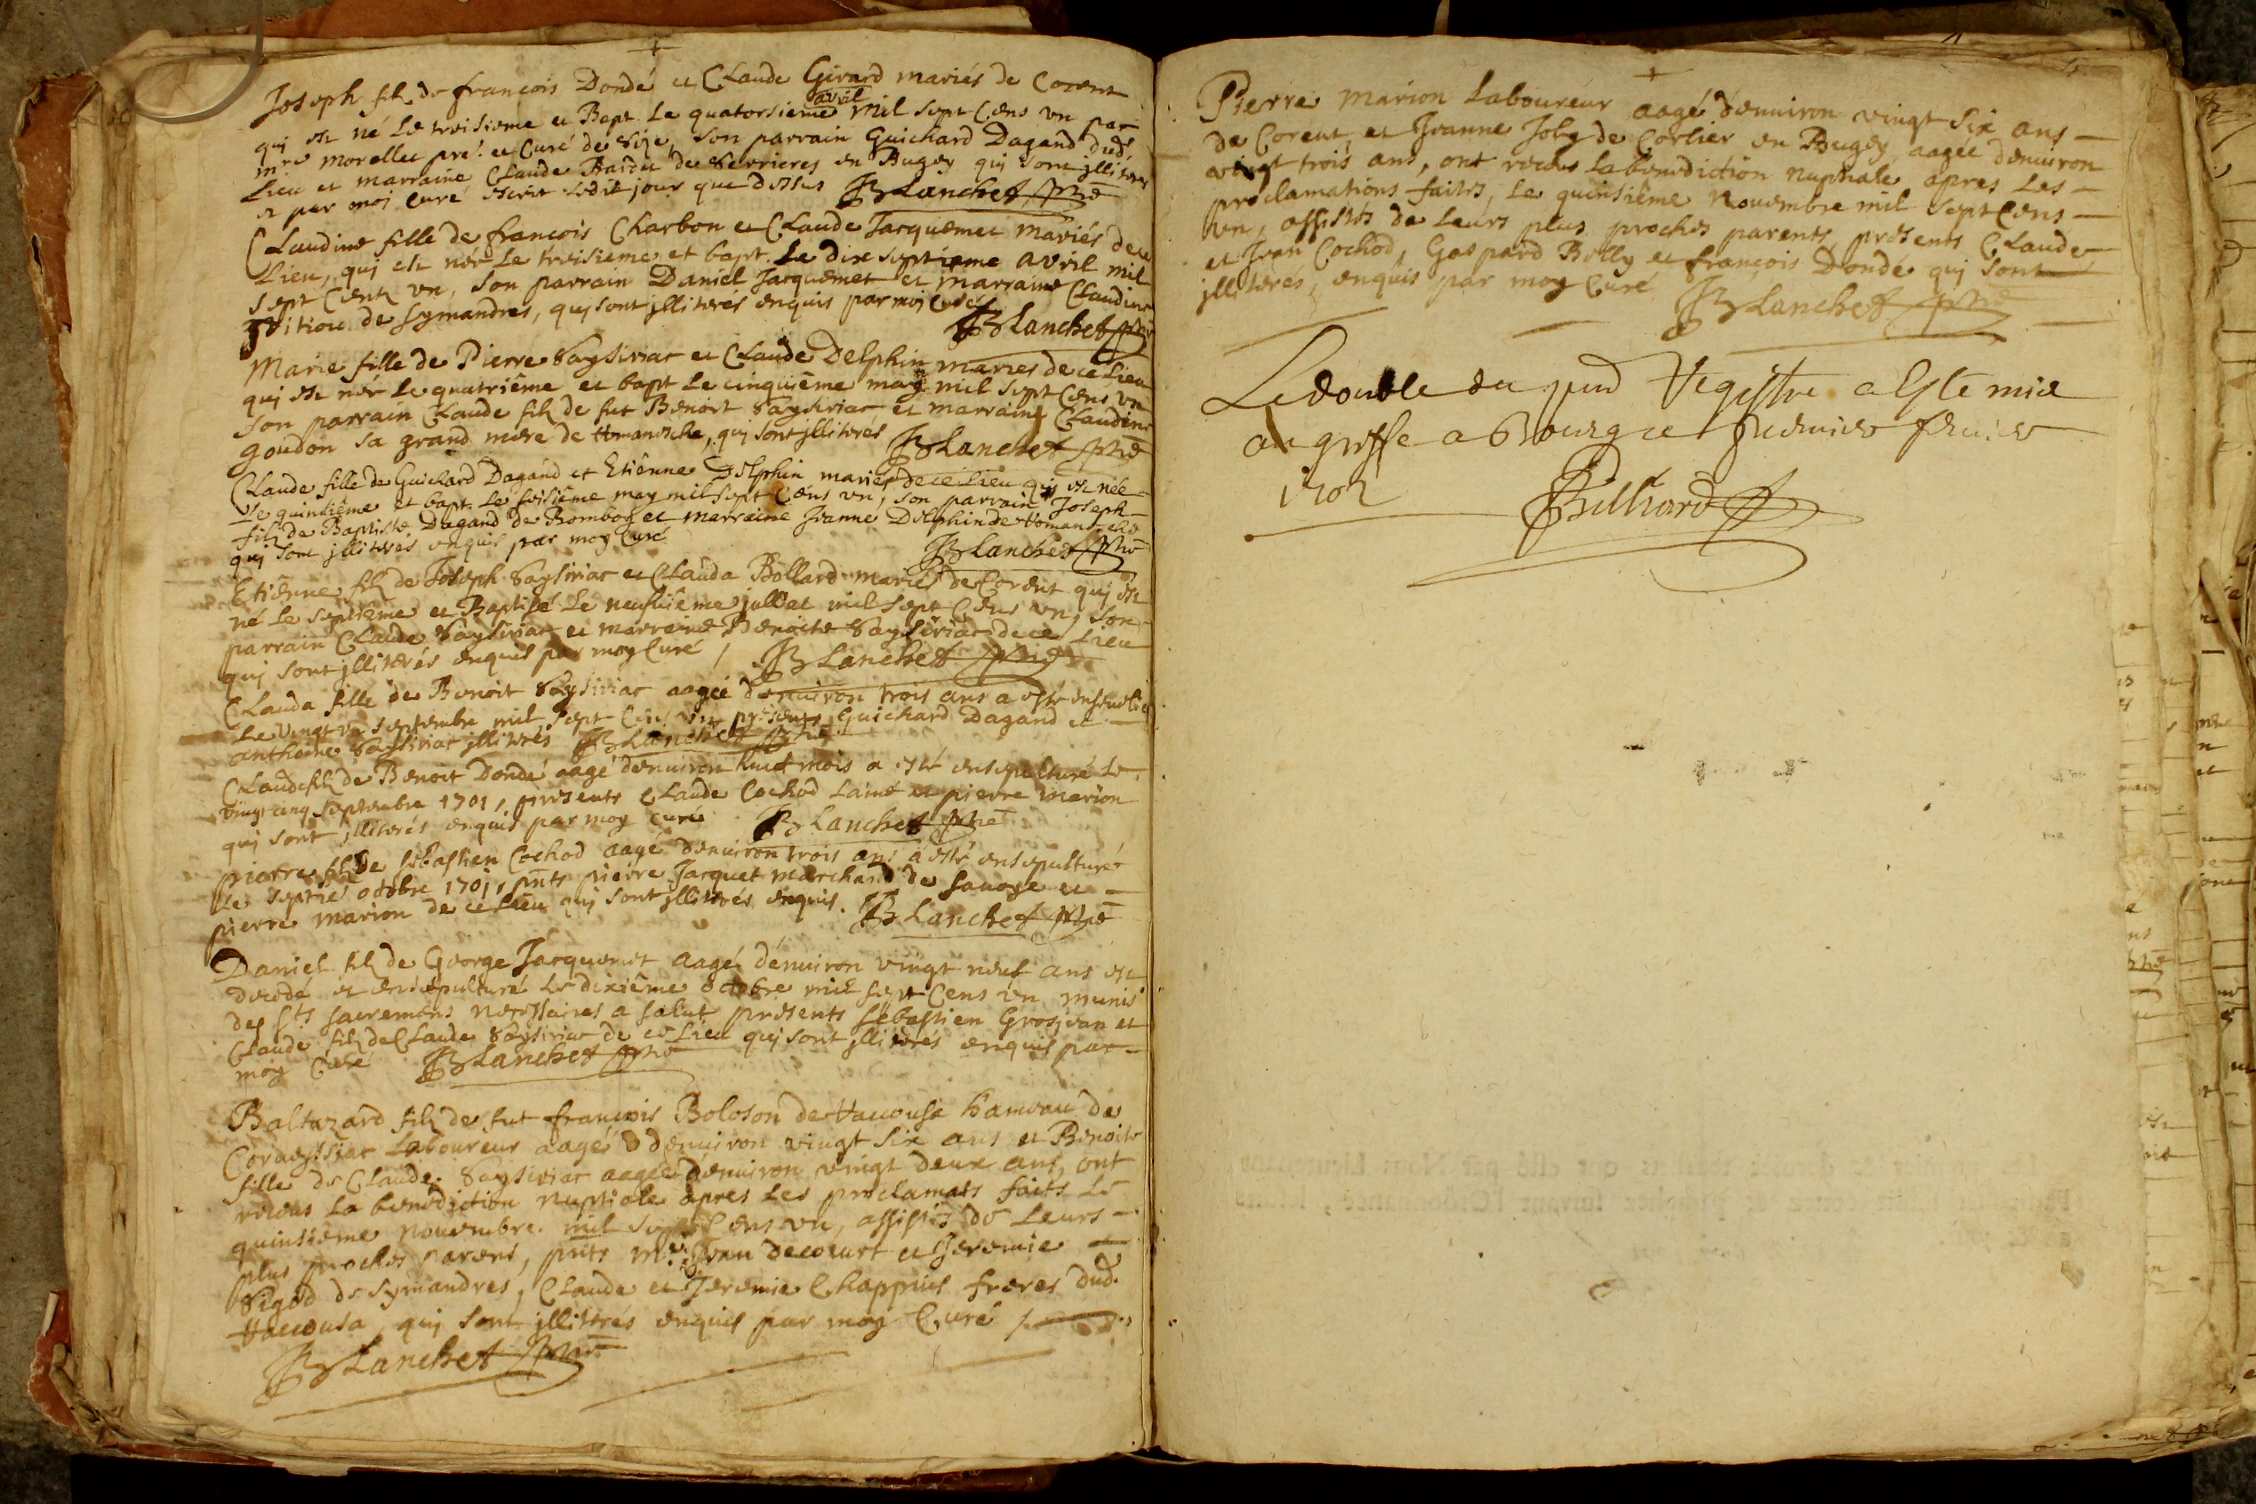 Joseph filz de francois Dondé et Claude Girard mariés de Corent
qui est né le troisieme et Bapt. le quatorsieme avril mil sept Cens un par
mre morellet pre. et Curé de Size, son parrain Guichard Dagand dud.
Lieu et marraine Claude de Serrieres en Bugey qui sont jlliteres
et par moi Curé ledit jour que dessus Blanchet
Claudine fille de francois Charbon et Claude Jacquemet mariés de ce
Lieu, qui est née le troisieme et bapt. le dix septieme avril mil
sept Centz un, son parrain Daniel Jacquemet et marraine Claudine
de Symandres, qui sont jlliterés enquis par moi Curé
Blanchet
Marie fille de Pierre Saysiriac et Claude Delphin mariés de ce Lieu
qui est née le quatriême et bapt le cinquiême may mil sept Cens un
son parrain Claude filz de fut Benoit Saysiriac et marraine Claudine
goudon sa grand mere de Romaneche, qui sont jlliteres Blanchet
Claude fille de Guichard Dagand et Etiênne Delphin mariés de ce Lieu qui est née
le quinsiême et bapt. le seisiême may mil sept Cens un, son parrain Joseph
filz de Baptiste Dagand de et marraine Jeanne Delphin de
qui sont jlliterés enquis par moy Curé Blanchet
Etiênne filz de Joseph Saysiriac et Clauda Bollard mariés de Corent qui est
né le septieme et Baptisé le neufviême jullet mil sept Cens un, son
parrain Claude Saysiriac et marraine Benoite Saysiriac de ce Lieu
qui sont jlliterés enquis par moy Curé / Blanchet
Clauda fille de Benoit Saysiriac aagée denuiron trois ans a esté
le vingt un septembre mil sept Cens un presents Guichard Dagand et
antheme Saysiriac jllitrés Blanchet
Claude filz de Benoit Dondé aagé denuiron huict mois a esté ensepulturé le
vingt cinq septembre 1701, presents Claude Cochod lainé et pierre marion
qui sont jlliterés enquis par moy curé Blanchet
pierre filz de sebastien Cochod aagé denuiron trois ans a esté ensepulturé
le septie octobre 1701, pnts pierre Jacquet marchand de savoye et
pierre marion de ce Lieu qui sont jllitrés enquis. Blanchet
Daniel filz de George Jacquemet aagé dénuiron vingt neuf ans est
decedé et ensepulturé le dixiême octobre mil sept Cens un munis
des Sts sacremens necessaires a salut presents sébastien Grosjean et
Claude filz de Claude Saysiriac de ce Lieu qui sont jllitérés enquis par
moy Curé Blanchet
Baltazard filz de fut francois Boloson de hameau de
laboureur aagés denuiron vingt six ans et Benoite
fille de Claude Saysiriac aagée dénuiron vingt deux ans, ont
receus la benediction nuptiale apres les proclamats faits le
quinsiême nouembre mil sept Cens un, assistés de leurs
plus proches parens, pnts me. Jean decourt et Jeremie
de Symandres, Claude et Jeremie Chappuis freres dud.
qui sont jllitrés enquis par moy Curé
Blanchet
Pierre Marion Laboureur aagé denuiron vingt six ans
de Corent, et Jeanne Joly de Corlier en Bugey aagée denuiron
vingt trois ans, ont receus la benediction nuptiale apres les
proclamations faites, le quinsiême Nouembre mil sept Cens
un, assistés de leurs plus proches parents, presents Claude
et Jean Cochod, Gaspard Bolly et francois Dondé qui sont
jllitérés, enquis par moy Curé Blanchet
Le double du pnt Registre a Esté mis
au greffe a Bourg ce premier
1702 Billiard